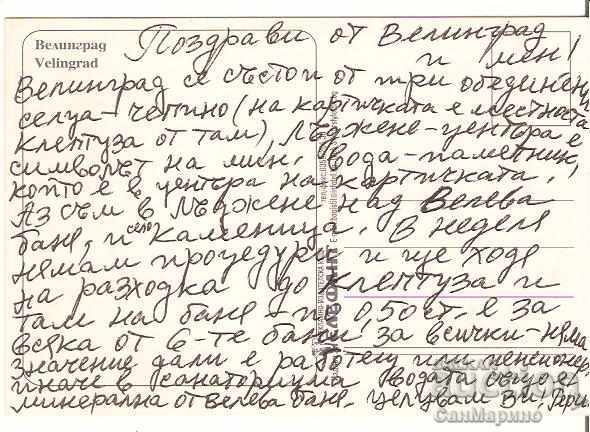 Велинград
Velingrad
Поздрави от Велинград
и мен!
Велинград се състои от три обединени
селца - Чепино (на картичката е местността
Клептуза от там), Лъджене - центъра е
символът на мин. вода - паметник,
който е в центъра на картичката.
Аз съм в Лъджене над Велева
баня, и село Каменица. В неделя
нямам процедури и ще ходя
на разходка до Клептуза и
там на баня - по 0,50 ст. е за
всяка от 6-те бани за всички - няма
значение дали е работещ или пенсионер,
иначе в санаториума водата също е
минерална от Велева баня. Целувам Ви.
СанМарино